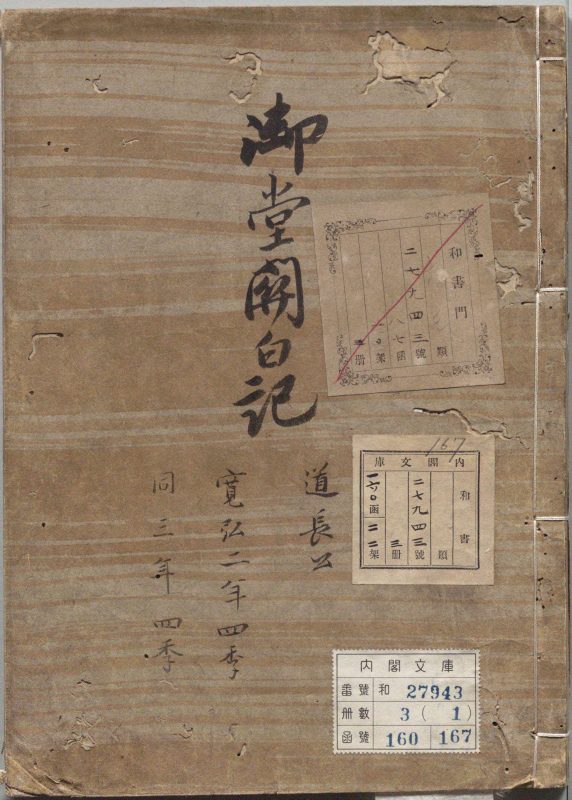 御堂關白記
道長公
寛弘二年四季
同三年四季
和書門
類
二七九四三號
八七函
一〇架
冊
167
内閣文庫
和書
類
二七九四三號
三冊
一六〇函
二二架
内閣文庫
番號 和 27943
冊數 3(1)
函號 160 167